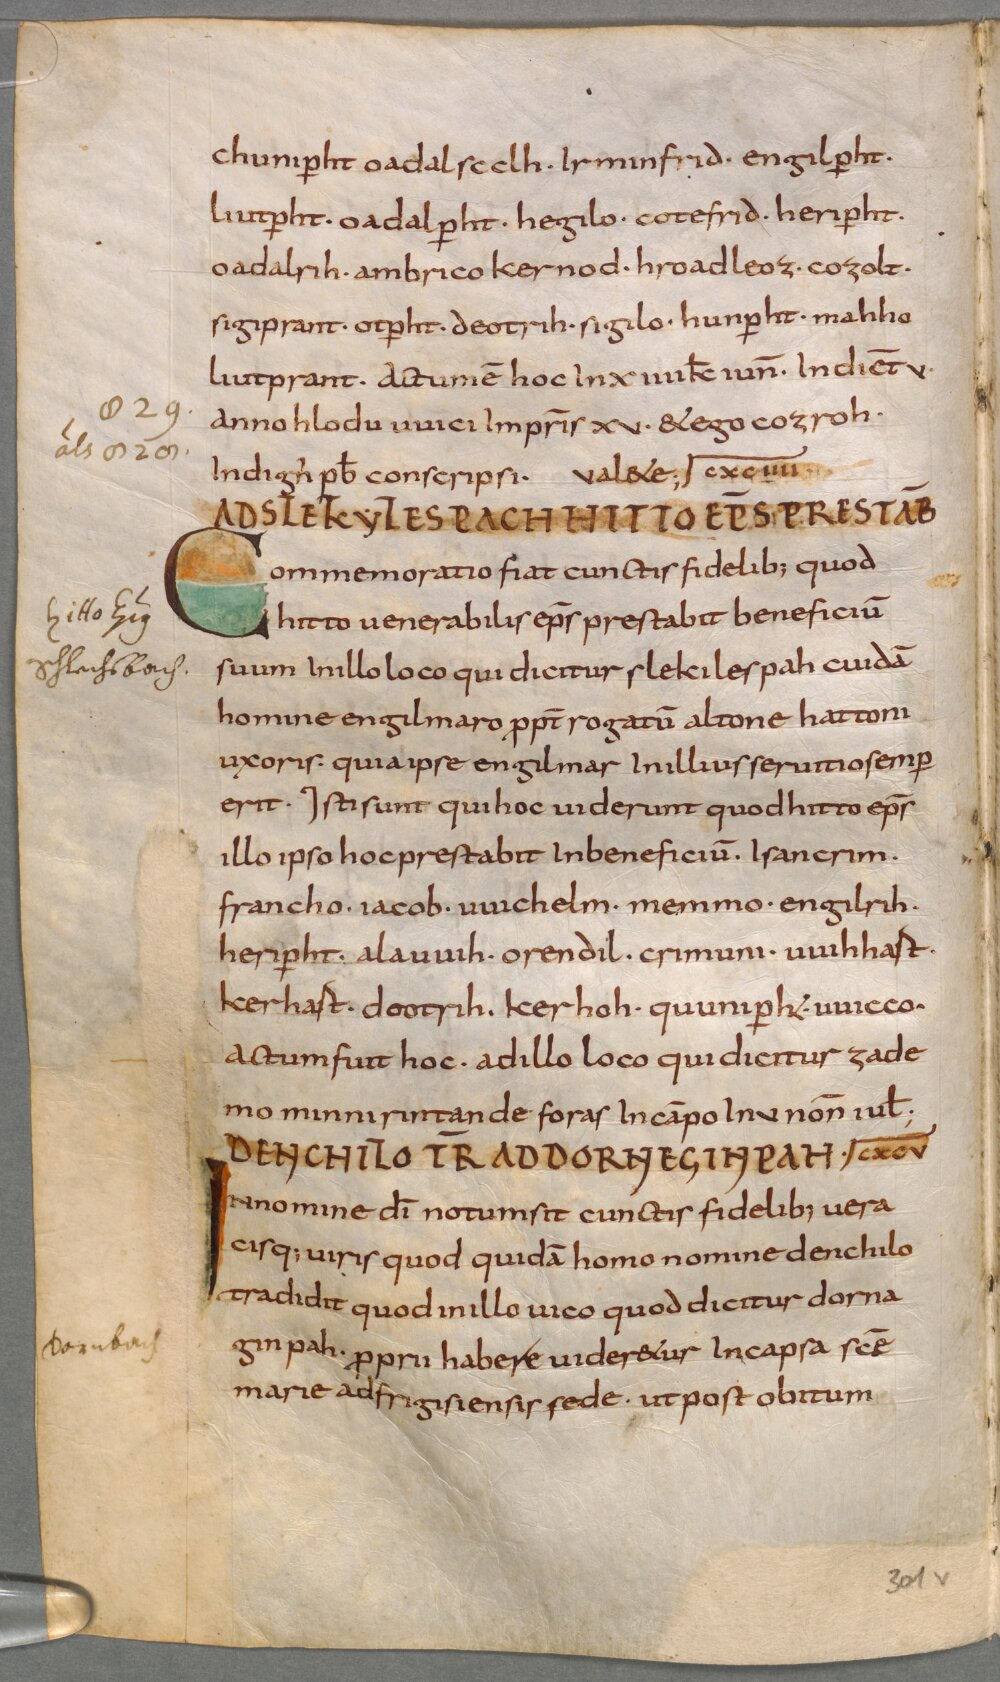 chunip̲ht oadalscclh · Irminfrid · engilp̲ht ·
liutp̲ht · oadalp̲ht · hegilo · cotefrid · herip̲ht ·
oadalrih · ambrico kernod · hroadleoz · cozolt ·
sigiprant · otp̲ht · deotrih · sigilo · hunp̲ht · mahho
liutprant · Actum ē hoc In x uiiii kƚ iuñ · Indict̄ v ·
829 ·
anno hloduuuici Imp̄ris xv · & ego cozroh ·
als 828 ·
Indigñ pb̄ conscripsi · Val&e ; cxciiii
AD SLEKYLESPACH HITTO EP̄S PRESTAB̄
Commemoratio fiat cunctis fidelib; quod
hitto uenerabilis ep̄s prestabit beneficiū
hitto
Schlechsbach ·
suum In illo loco qui dicitur slekilespah cuidā
homine engilmaro p̲pt̄ rogatū altone hattoni
uxoris · quia ipse engilmar In illius seruitio semp̲
erit · Isti sunt qui hoc uiderunt quod hitto ep̄s
illo ipso hoc prestabit In beneficiū · Isancrim ·
francho · iacob · uuichelm · memmo · engilrih ·
herip̲ht · alauuih · orendil · crimuni · uuihhast ·
kerhast · deotrih · kerhoh · quunip̲h& · uuicco ·
actum fuit hoc · ad illo loco qui dicitur zade
mo minnirintande foras In cāpo In v noñ iuƚ ;
DENCHILO TR̄ AD DORNEGINPAH · cxcv
In nomine dī notum sit cunctis fidelib; uera
cisq; uiris quod quidā homo nomine denchilo
tradidit quod in illo uico quod dicitur dorna
Dornbach
ginpah · p̲prii habere uider&ur In capsa scē
marie ad frigisiensis sede · ut post obitum
301 v